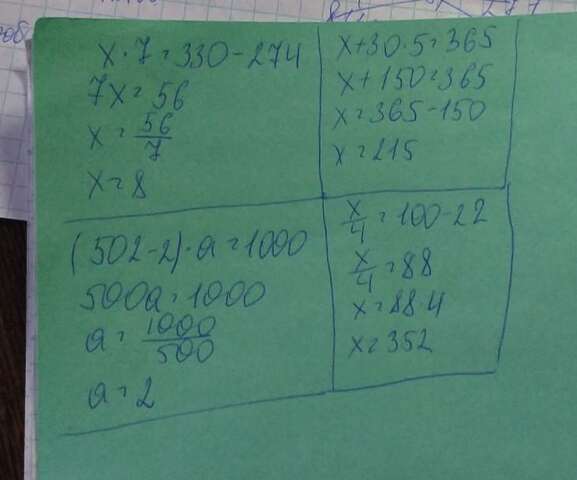 x·7=330-274
7x=56
x=56/7
x=8
x+30·5=365
x+150=365
x=365-150
x=215
(502-2)·a=1000
500a=1000
a=1000/500
a=2
x/4=100-22
x/4=88
x=88·4
x=352